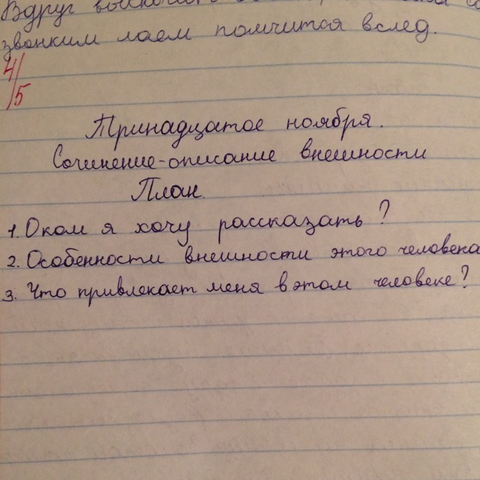 Вдруг
звонким лаем помчится вслед.
4/5
Тринадцатое ноября.
Сочинение-описание внешности
План
1. Оком я хочу рассказать?
2. Особенности внешности этого человека
3. Что привлекает меня в этом человеке?